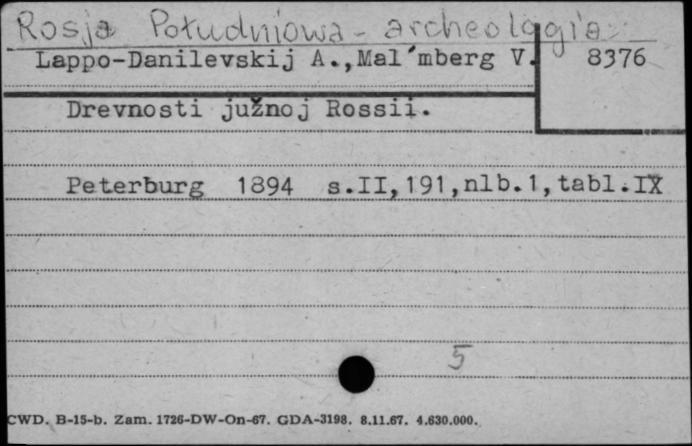 Rosja Południowa - archeologia
Lappo-Danilevskij A.,Mal'mberg V. 8376
Drevnosti južnoj Rossii.
Peterburg 1894 s.II,191,nlb.1,tabl.IX
5
CWD. B-15-b. Zam. 1726-DW-On-67. GDA-3198. 8.11.67. 4.630.000.